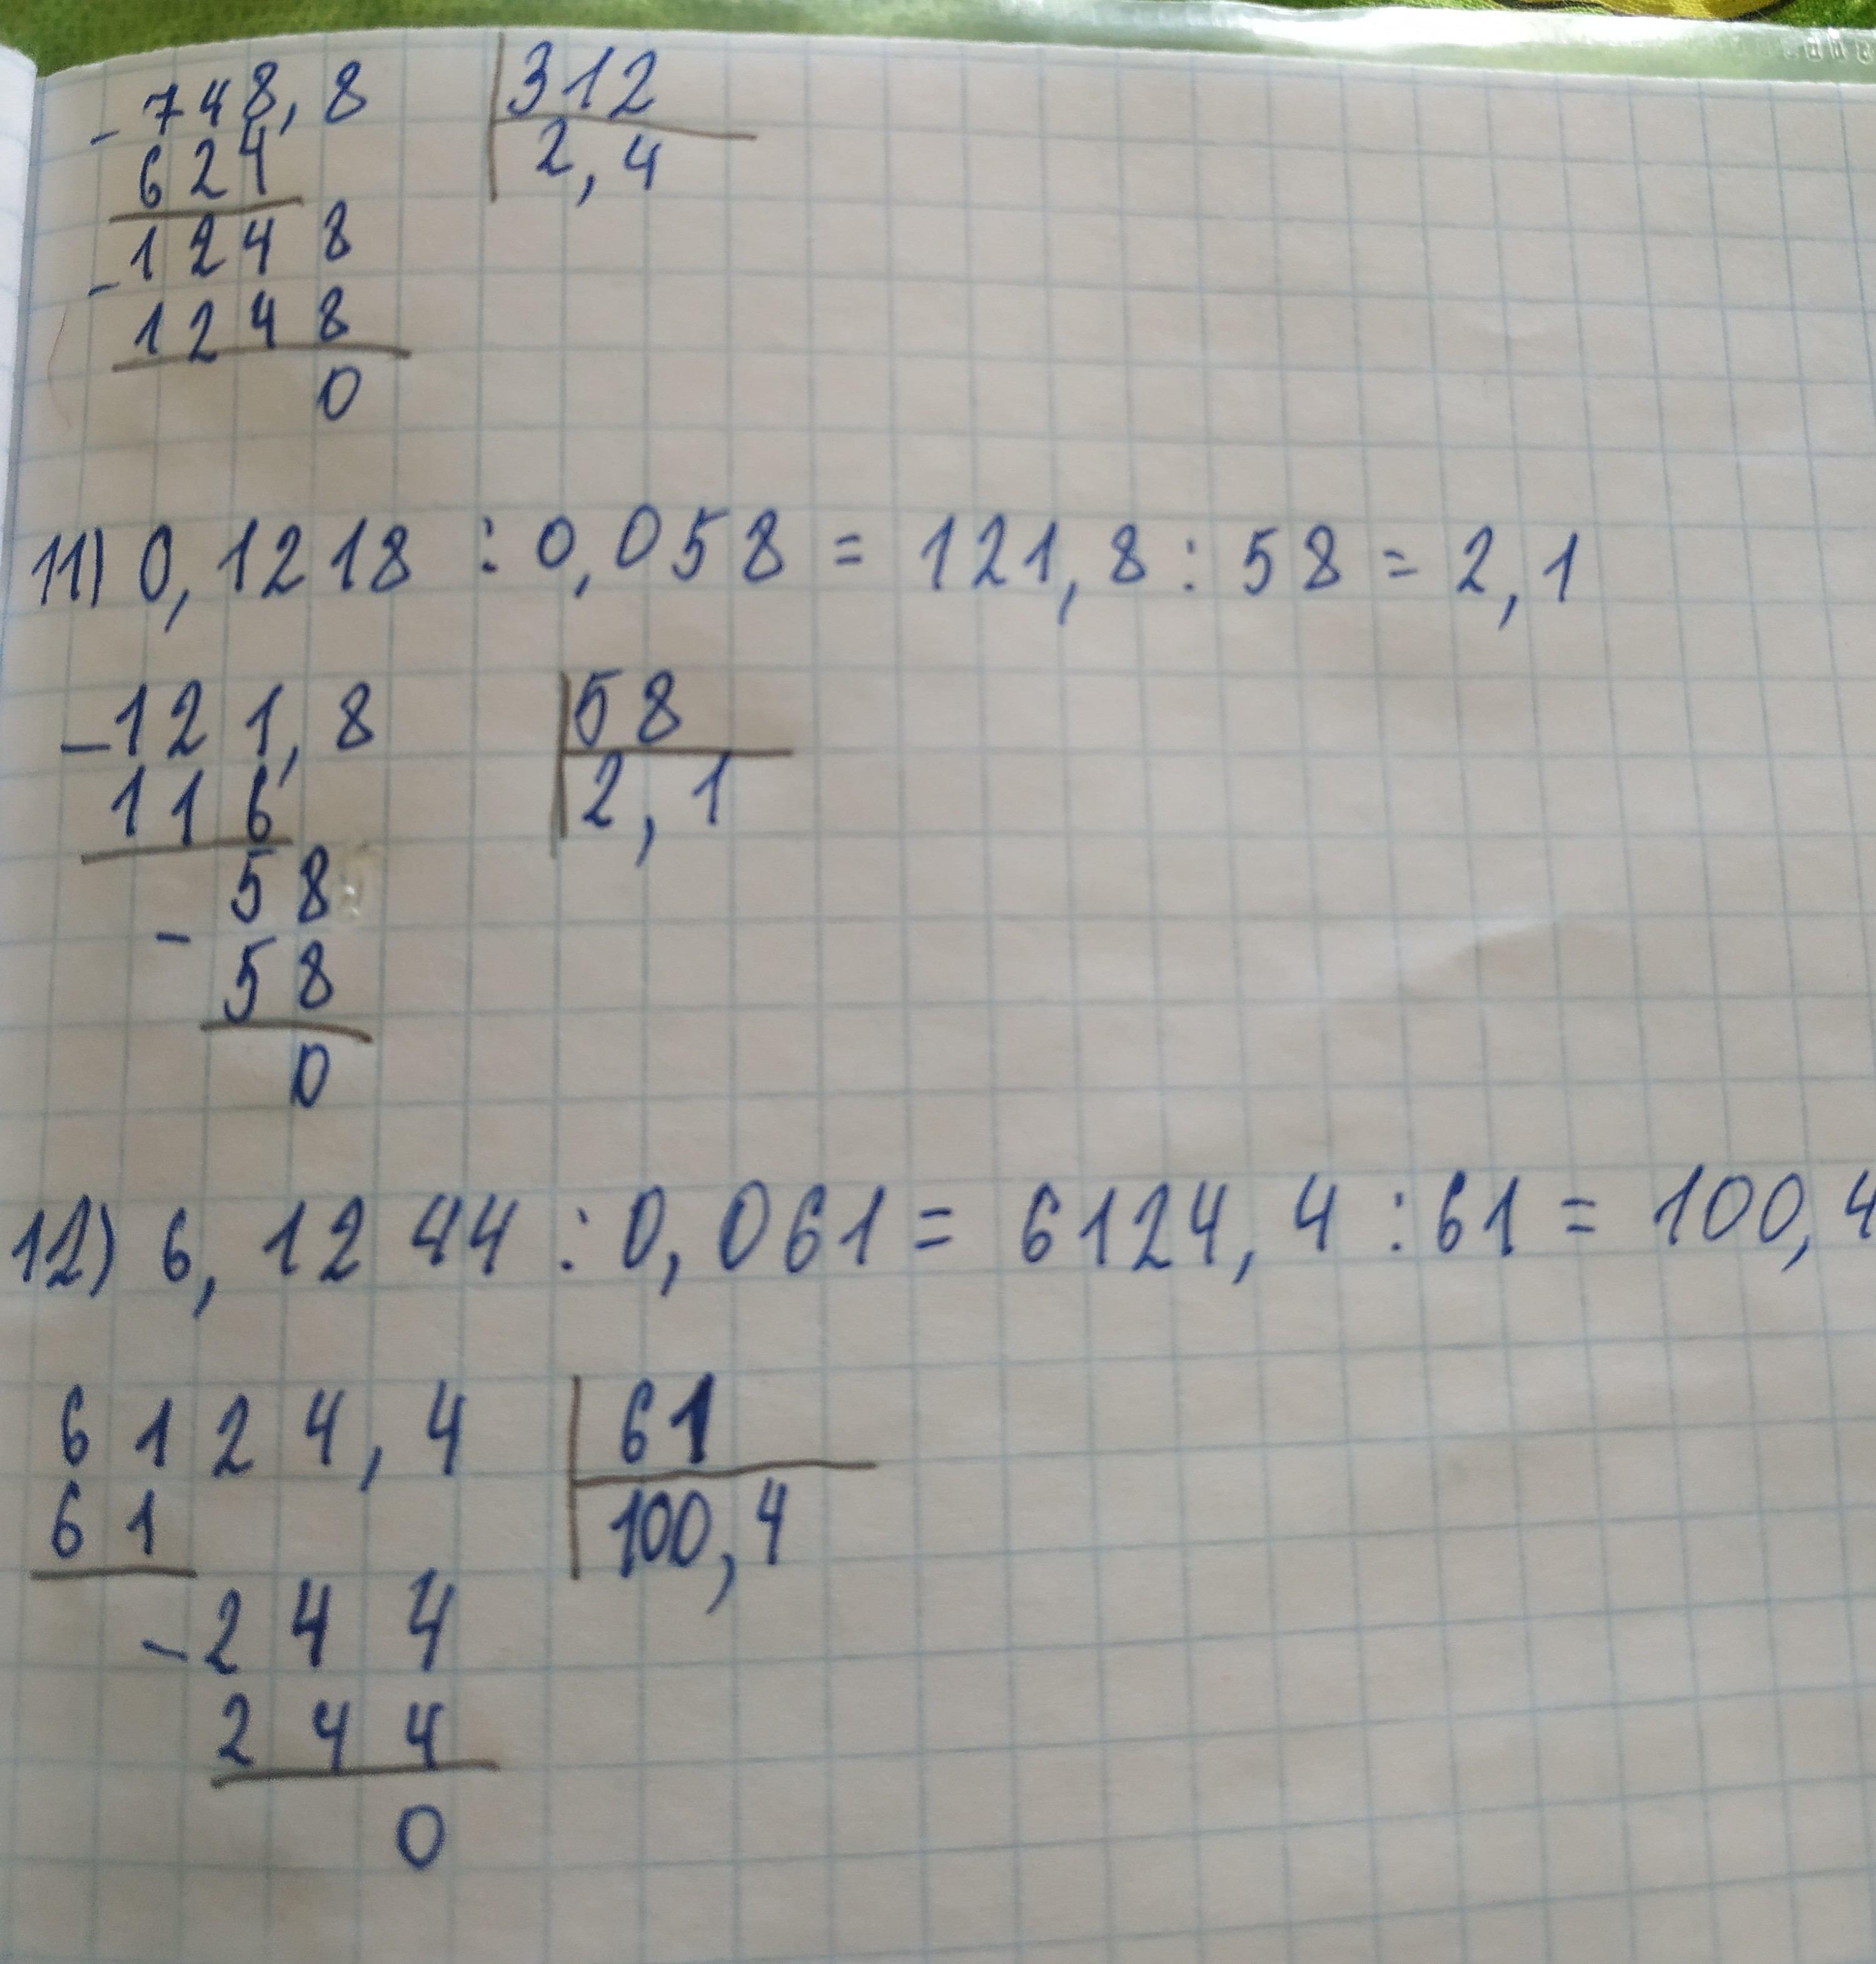 - 748,8 312
624 2,4
1248
- 1248
0
11) 0,1218 : 0,058 = 121,8 : 58 = 2,1
- 121,8 58
116 2,1
58
- 58
0
12) 6,1244 : 0,061 = 6124,4 : 61 = 100,4
6124,4 61
61 100,4
- 244
244
0